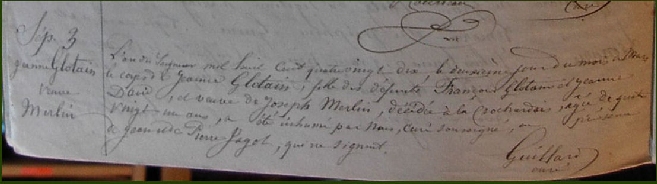 Sp. 3
Jeanne Glotain
veuve
Merlin
L'an du Seigneur mil huit cent quatre vingt dix, le deuxième jour du mois de Mars
le corps de Jeanne Glotain, fille des défunts François Glotain et Jeanne
David, et veuve de Joseph Merlin, décédée à la Crochardais, agée de quatre
vingt-un ans, a été inhumé par Nous, curé soussigné, en présence
de Jean et de Pierre Pagot, qui ne signent.
Guillard
curé